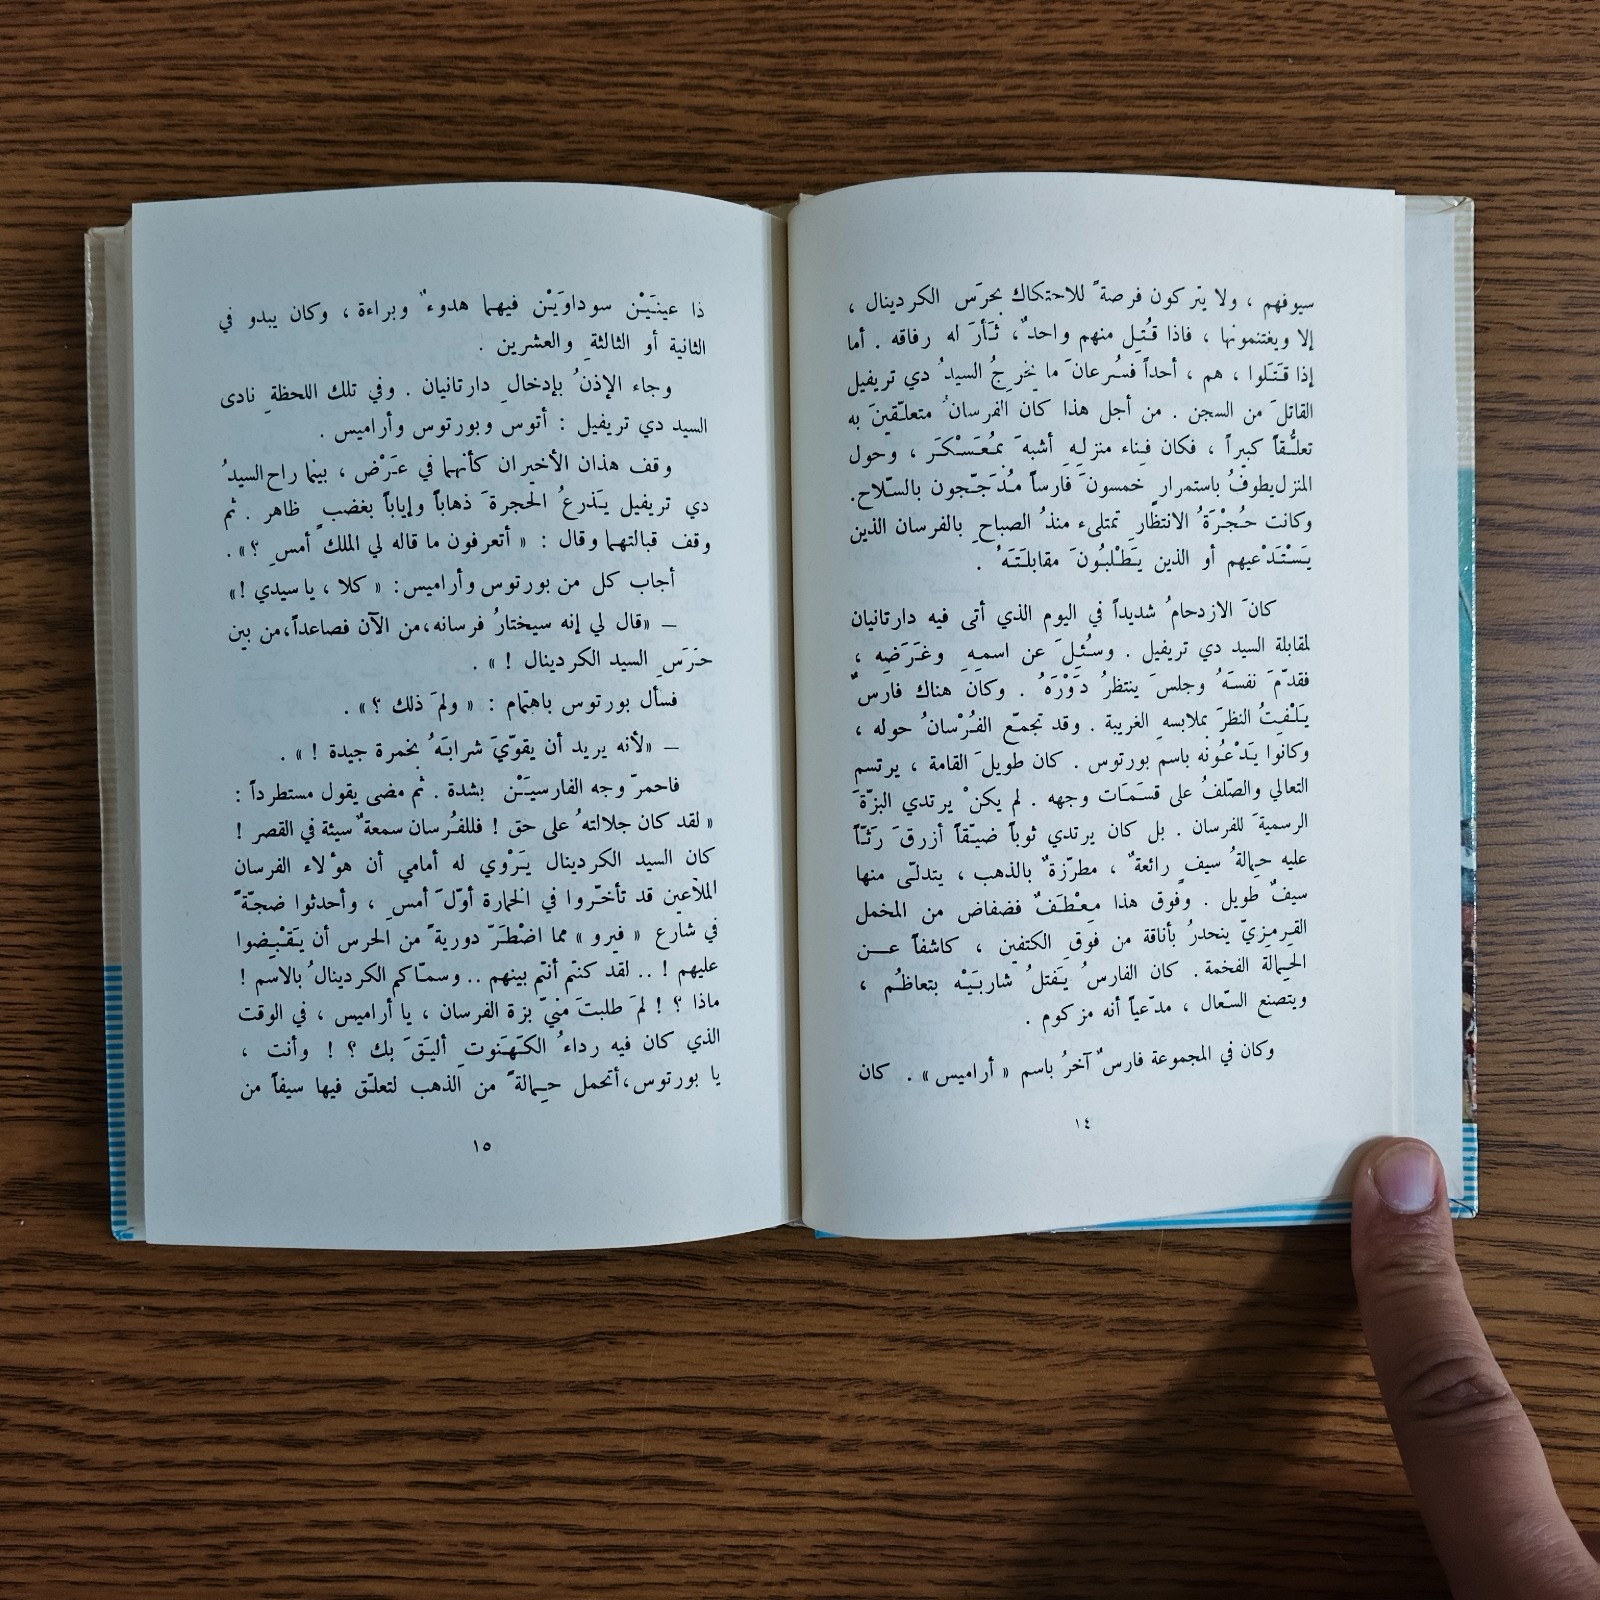 سيوفهم ، ولا يتركون فرصةً للاحتكاك بحرَس الكردينال ،
إلا ويغتنمونها ، فاذا قُتِل منهم واحدٌ، ثَأرَ له رفاقه . أما
إذا قَتَلوا ، هم ، أحداً فسُرعانَ ما يخرِجُ السيدُ دي تريفيل
القاتلَ من السجن . من أجل هذا كان الفرسانُ متعلّقينَ به
تعلُّقاً كبيراً ، فكان فِناء منزلِهِ أشبهَ بمُعَسْكَرَ ، وحول
المنزل يطوفُ باستمرارٍ خمسونَ فارساً مُدَجَّجون بالسّلاح.
وكانت حُجْرَةُ الانتظارِ تمتلىء منذُ الصباحِ بالفرسان الذين
يَسْتَدْعيهم أو الذين يَطْلبُونَ مقابلَتَهُ .
كانَ الازدحامُ شديداً في اليوم الذي أتى فيه دارتانيان
لمقابلة السيد دي تريفيل . وسُئِلَ عن اسمِهِ وغَرَضِهِ ،
فقدّمَ نفسَهُ وجلسَ ينتظرُ دَوْرَهُ . وكانَ هناك فارسٌ
يَلْفِتُ النظرَ بملابسهِ الغريبة . وقد تجمّع الفُرْسانُ حوله ،
وكانوا يَدْعُونه باسم بورتوس . كان طويلَ القامة ، يرتسم
التعالي والصّلفُ على قسَمَات وجهه . لم يكنْ يرتدي البزّةَ
الرسميةَ للفرسان . بل كان يرتدي ثوباً ضيّقاً أزرقَ رَثّاً
عليه حِمالةُ سيفٍ رائعةٌ ، مطرّزةٌ بالذهب ، يتدلّى منها
سيفٌ طويل . وفوق هذا مِعْطَفٌ فضفاض من المخمل
القِرمِزيّ ينحدرُ بأناقة من فوقِ الكتفين ، كاشفاً عـن
الحِمالة الفخمة . كان الفارسُ يَفتلُ شاربَيْه بتعاظُم ،
ويتصنع السّعال ، مدّعياً أنه مزكوم .
وكان في المجموعة فارسٌ آخرُ باسم « أراميس » . كان
١٤
ذا عينَيْن سوداوَيْن فيهما هدوءٌ وبراءة ، وكان يبدو في
الثانية أو الثالثةِ والعشرين .
وجاء الإذنُ بإدخالِ دارتانيان . وفي تلك اللحظةِ نادى
السيد دي تريفيل : أتوس وبورتوس وأراميس .
وقف هذان الأخيران كأنهما في عَرْض ، بينما راح السيدُ
دي تريفيل يَذرعُ الحجرةَ ذهاباً وإياباً بغضبٍ ظاهر . ثم
وقف قبالتهما وقال : « أتعرفون ما قاله لي الملك أمسِ ؟ » .
أجاب كل من بورتوس وأراميس: « كلا ، يا سيدي ! »
ــ «قال لي إنه سيختارُ فرسانه،من الآن فصاعداً،من بين
حَرَسِ السيد الكردينال ! » .
فسأل بورتوس باهتمام : « ولمَ ذلك ؟ » .
ــ «لأنه يريد أن يقوّيَ شرابَهُ بخمرة جيدة ! » .
فاحمرّ وجه الفارسيَنْ بشدة . ثم مضى يقول مستطرداً :
« لقد كان جلالتهُ على حق ! فللفُرسان سمعةٌ سيئة في القصر !
كان السيد الكردينال يَرْوي له أمامي أن هؤلاء الفرسان
الملاعين قد تأخّروا في الخمارة أوّلَ أمسِ ، وأحدثوا ضجّةً
في شارع « فيرو » مما اضْطَرّ دوريةً من الحرس أن يَقْبِضوا
عليهم ! .. لقد كنتم أنتم بينهم .. وسمّاكم الكردينالُ بالاسم !
ماذا ؟ ! لمَ طلبتَ منيّ بزة الفرسان ، يا أراميس ، في الوقت
الذي كان فيه رداءُ الكَهَنوتِ أليَقَ بك ؟ ! وأنت ،
يا بورتوس،أتحمل حِمالةً من الذهب لتعلّق فيها سيفاً من
١٥